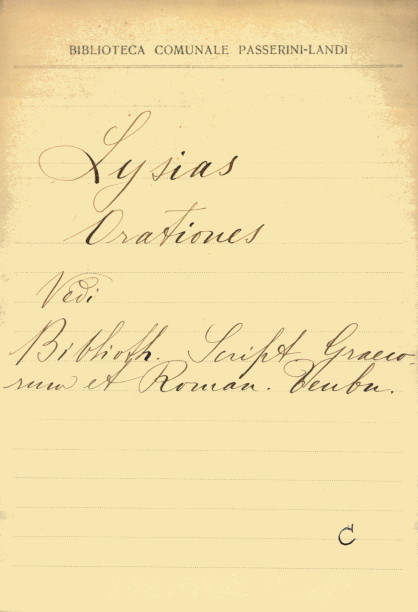 BIBLIOTECA COMUNALE PASSERINI-LANDI
Lysias
Orationes
Vedi
Biblioth. Script. Graeco-
rum et Roman. Teubn.
C